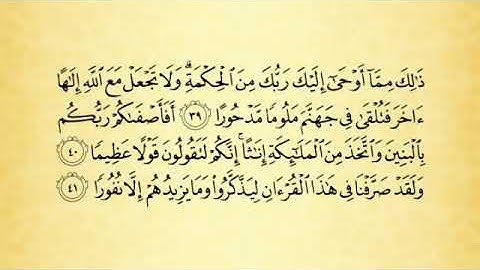 ذَٰلِكَ مِمَّآ أَوۡحَىٰٓ إِلَيۡكَ رَبُّكَ مِنَ ٱلۡحِكۡمَةِۗ وَلَا تَجۡعَلۡ مَعَ ٱللَّهِ إِلَٰهًا
ءَاخَرَ فَتُلۡقَىٰ فِي جَهَنَّمَ مَلُومٗا مَّدۡحُورًا ٣٩ أَفَأَصۡفَىٰكُمۡ رَبُّكُم
بِٱلۡبَنِينَ وَٱتَّخَذَ مِنَ ٱلۡمَلَٰٓئِكَةِ إِنَٰثًاۚ إِنَّكُمۡ لَتَقُولُونَ قَوۡلًا عَظِيمٗا ٤٠
وَلَقَدۡ صَرَّفۡنَا فِي هَٰذَا ٱلۡقُرۡءَانِ لِيَذَّكَّرُواْ وَمَا يَزِيدُهُمۡ إِلَّا نُفُورٗا ٤١